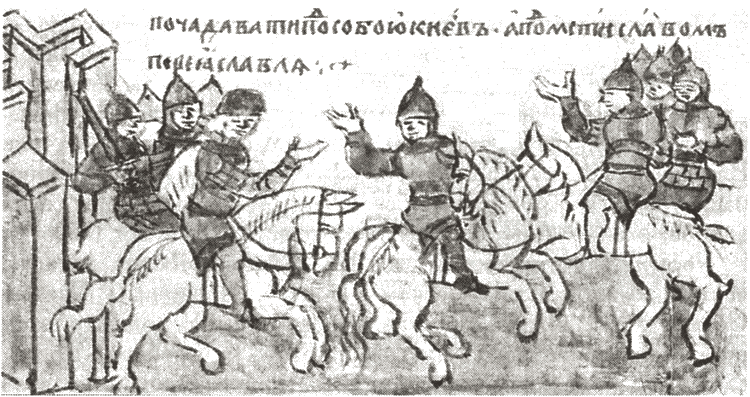 почадаватиподсобоюкиевъ · аподмстиславомъ
переяславля